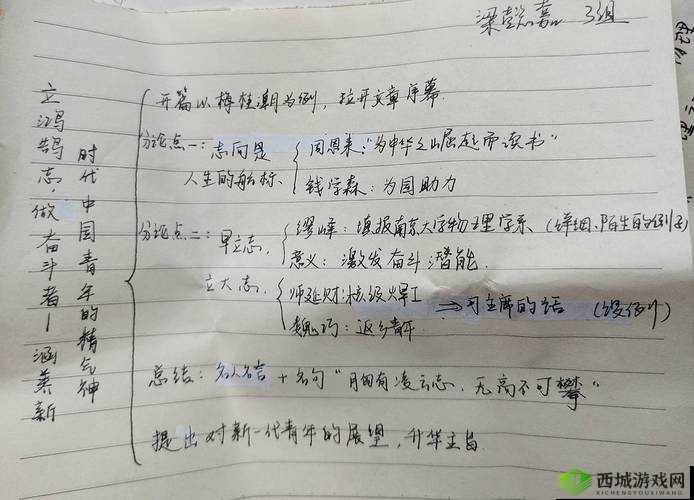 梁懿嘉 3组
立鸿鹄志,做奋斗者—涵养新
时代中国青年的精气神
开篇以梅桂潮为例,拉开文章序幕.
分论点一:志向是
人生的航标、
周恩来:“为中华之崛起而读书”
钱学森:为国助力
分论点二:早立志,
缪峰:填报南京大学物理学系(详细、陌生的例子)
意义:激发奋斗潜能.
立大志,
师延财:核级焊工 ⇒习主席的话
魏巧:返乡青年
总结:名人名言+名句“胸有凌云志,无高不可攀”
提出对新一代青年的展望,升华主旨.
西城游戏网
XICHENGYOUXIWANG